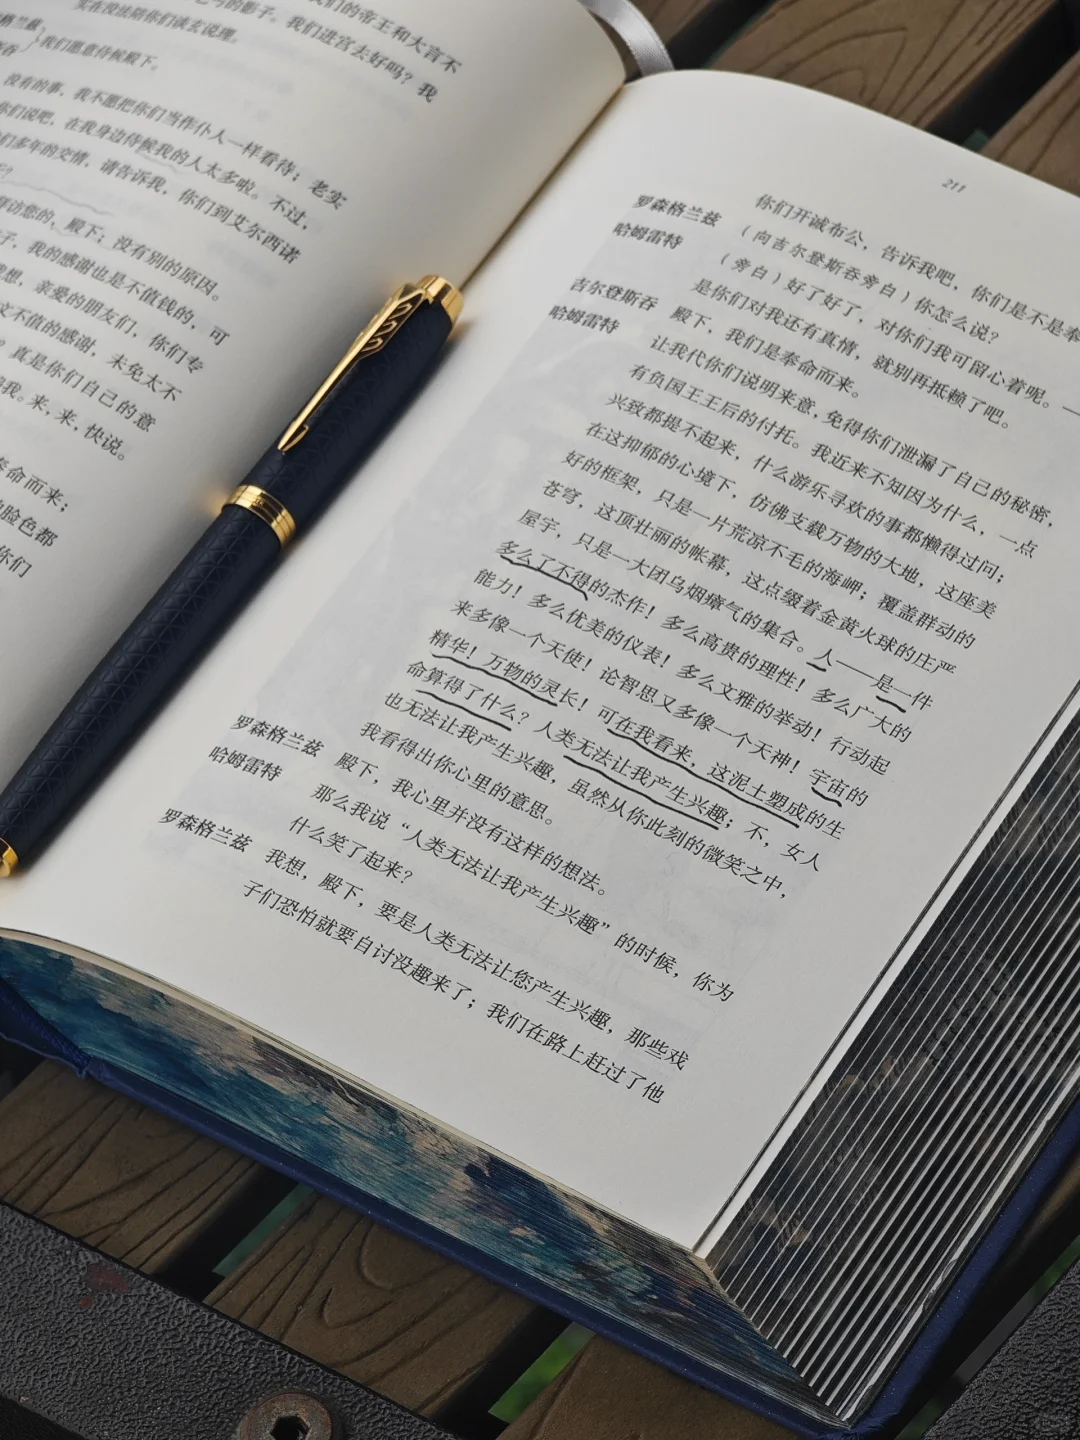 们的帝王和大言不
的影子。我们进宫去好吗？我
实在没法陪你们谈玄说理。
格兰兹
吞
我们愿意侍候殿下。
没有的事，我不愿把你们当作仆人一样看待；老实
你们说吧，在我身边侍候我的人太多啦。不过，
们多年的交情，请告诉我，你们到艾尔西诺
？
拜访您的，殿下；没有别的原因。
子，我的感谢也是不值钱的，可
想，亲爱的朋友们，你们专
文不值的感谢，未免太不
？真是你们自己的意
我。来，来，快说。
奉命而来；
的脸色都
你们
211
你们开诚布公，告诉我吧，你们是不是奉
罗森格兰兹 （向吉尔登斯吞旁白）你怎么说？
哈姆雷特 （旁白）好了好了，对你们我可留心着呢。—
是你们对我还有真情，就别再抵赖了吧。
吉尔登斯吞 殿下，我们是奉命而来。
哈姆雷特 让我代你们说明来意，免得你们泄漏了自己的秘密，
有负国王王后的付托。我近来不知因为什么，一点
兴致都提不起来，什么游乐寻欢的事都懒得过问；
在这抑郁的心境下，仿佛支载万物的大地，这座美
好的框架，只是一片荒凉不毛的海岬；覆盖群动的
苍穹，这顶壮丽的帐幕，这点缀着金黄火球的庄严
屋宇，只是一大团乌烟瘴气的集合。人——是一件
多么了不得的杰作！多么高贵的理性！多么广大的
能力！多么优美的仪表！多么文雅的举动！行动起
来多像一个天使！论智思又多像一个天神！宇宙的
精华！万物的灵长！可在我看来，这泥土塑成的生
命算得了什么？人类无法让我产生兴趣；不，女人
也无法让我产生兴趣，虽然从你此刻的微笑之中，
我看得出你心里的意思。
罗森格兰兹 殿下，我心里并没有这样的想法。
哈姆雷特 那么我说“人类无法让我产生兴趣”的时候，你为
什么笑了起来？
罗森格兰兹 我想，殿下，要是人类无法让您产生兴趣，那些戏
子们恐怕就要自讨没趣来了；我们在路上赶过了他